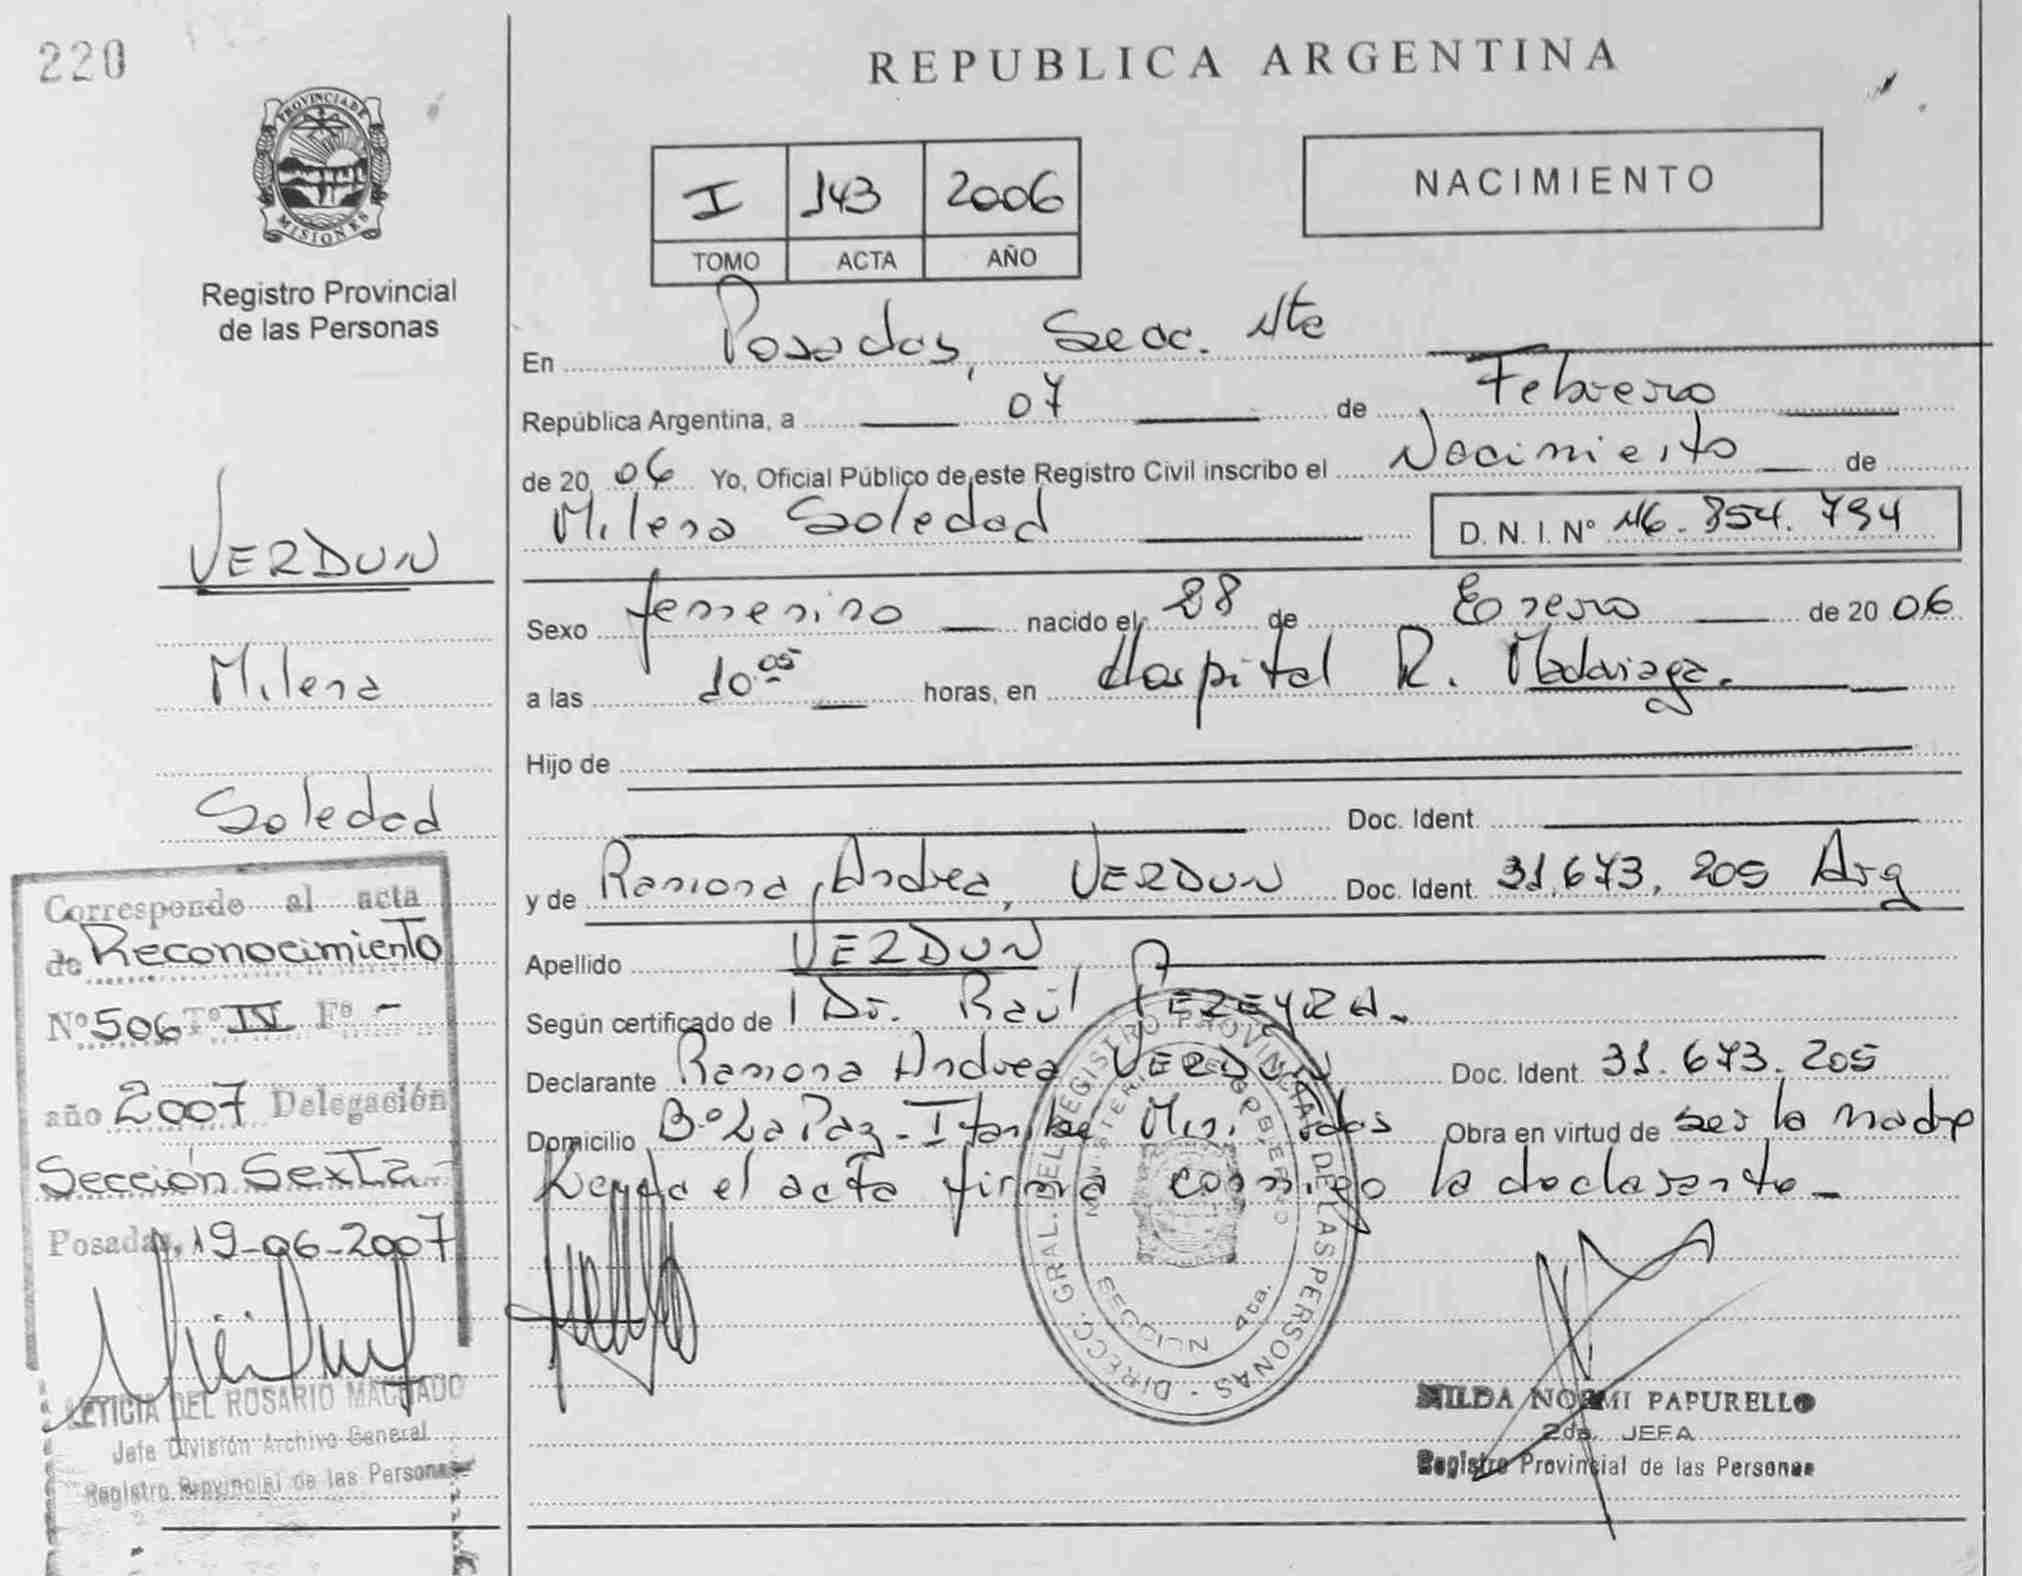 220
PROVINCIA DE
MISIONES
Registro Provincial
de las Personas
VERDUN
Milena
Soledad
Corresponde al acta
de Reconocimiento
Nº 506 Tº IV Fº -
año 2007 Delegación
Sección Sexta
Posadas, 19-06-2007
LETICIA DEL ROSARIO MACHADO
Jefe División Archivo General
Registro Provincial de las Personas
REPUBLICA ARGENTINA
I 143 2006
TOMO ACTA AÑO
NACIMIENTO
En Posadas, Secc. 4te
República Argentina, a 07 de Febrero
de 20 06 Yo, Oficial Público de este Registro Civil inscribo el Nacimiento de
Milena Soledad D. N. I. Nº 46. 354. 794
Sexo femenino nacido el 28 de Enero de 20 06
a las 10 05 horas, en Hospital R. Madariaga.
Hijo de
Doc. Ident.
y de Ramona Andrea, VERDUN Doc. Ident. 31.673.205 Arg
Apellido VERDUN
Según certificado de Dr. Raúl PEREYRA.
Declarante Ramona Andrea VERDUN Doc. Ident. 31.673.205
Domicilio Bº La Paz - Mis. Pdas Obra en virtud de ser la madre
Leyda el acta firma conmigo la declarante
DIRECC. GRAL. DEL REGISTRO PROVINCIAL DE LAS PERSONAS -
MINISTERIO DE GOBIERNO
SECCION 4ta.
HILDA NOEMI PAPURELLO
2da. JEFA
Registro Provincial de las Personas